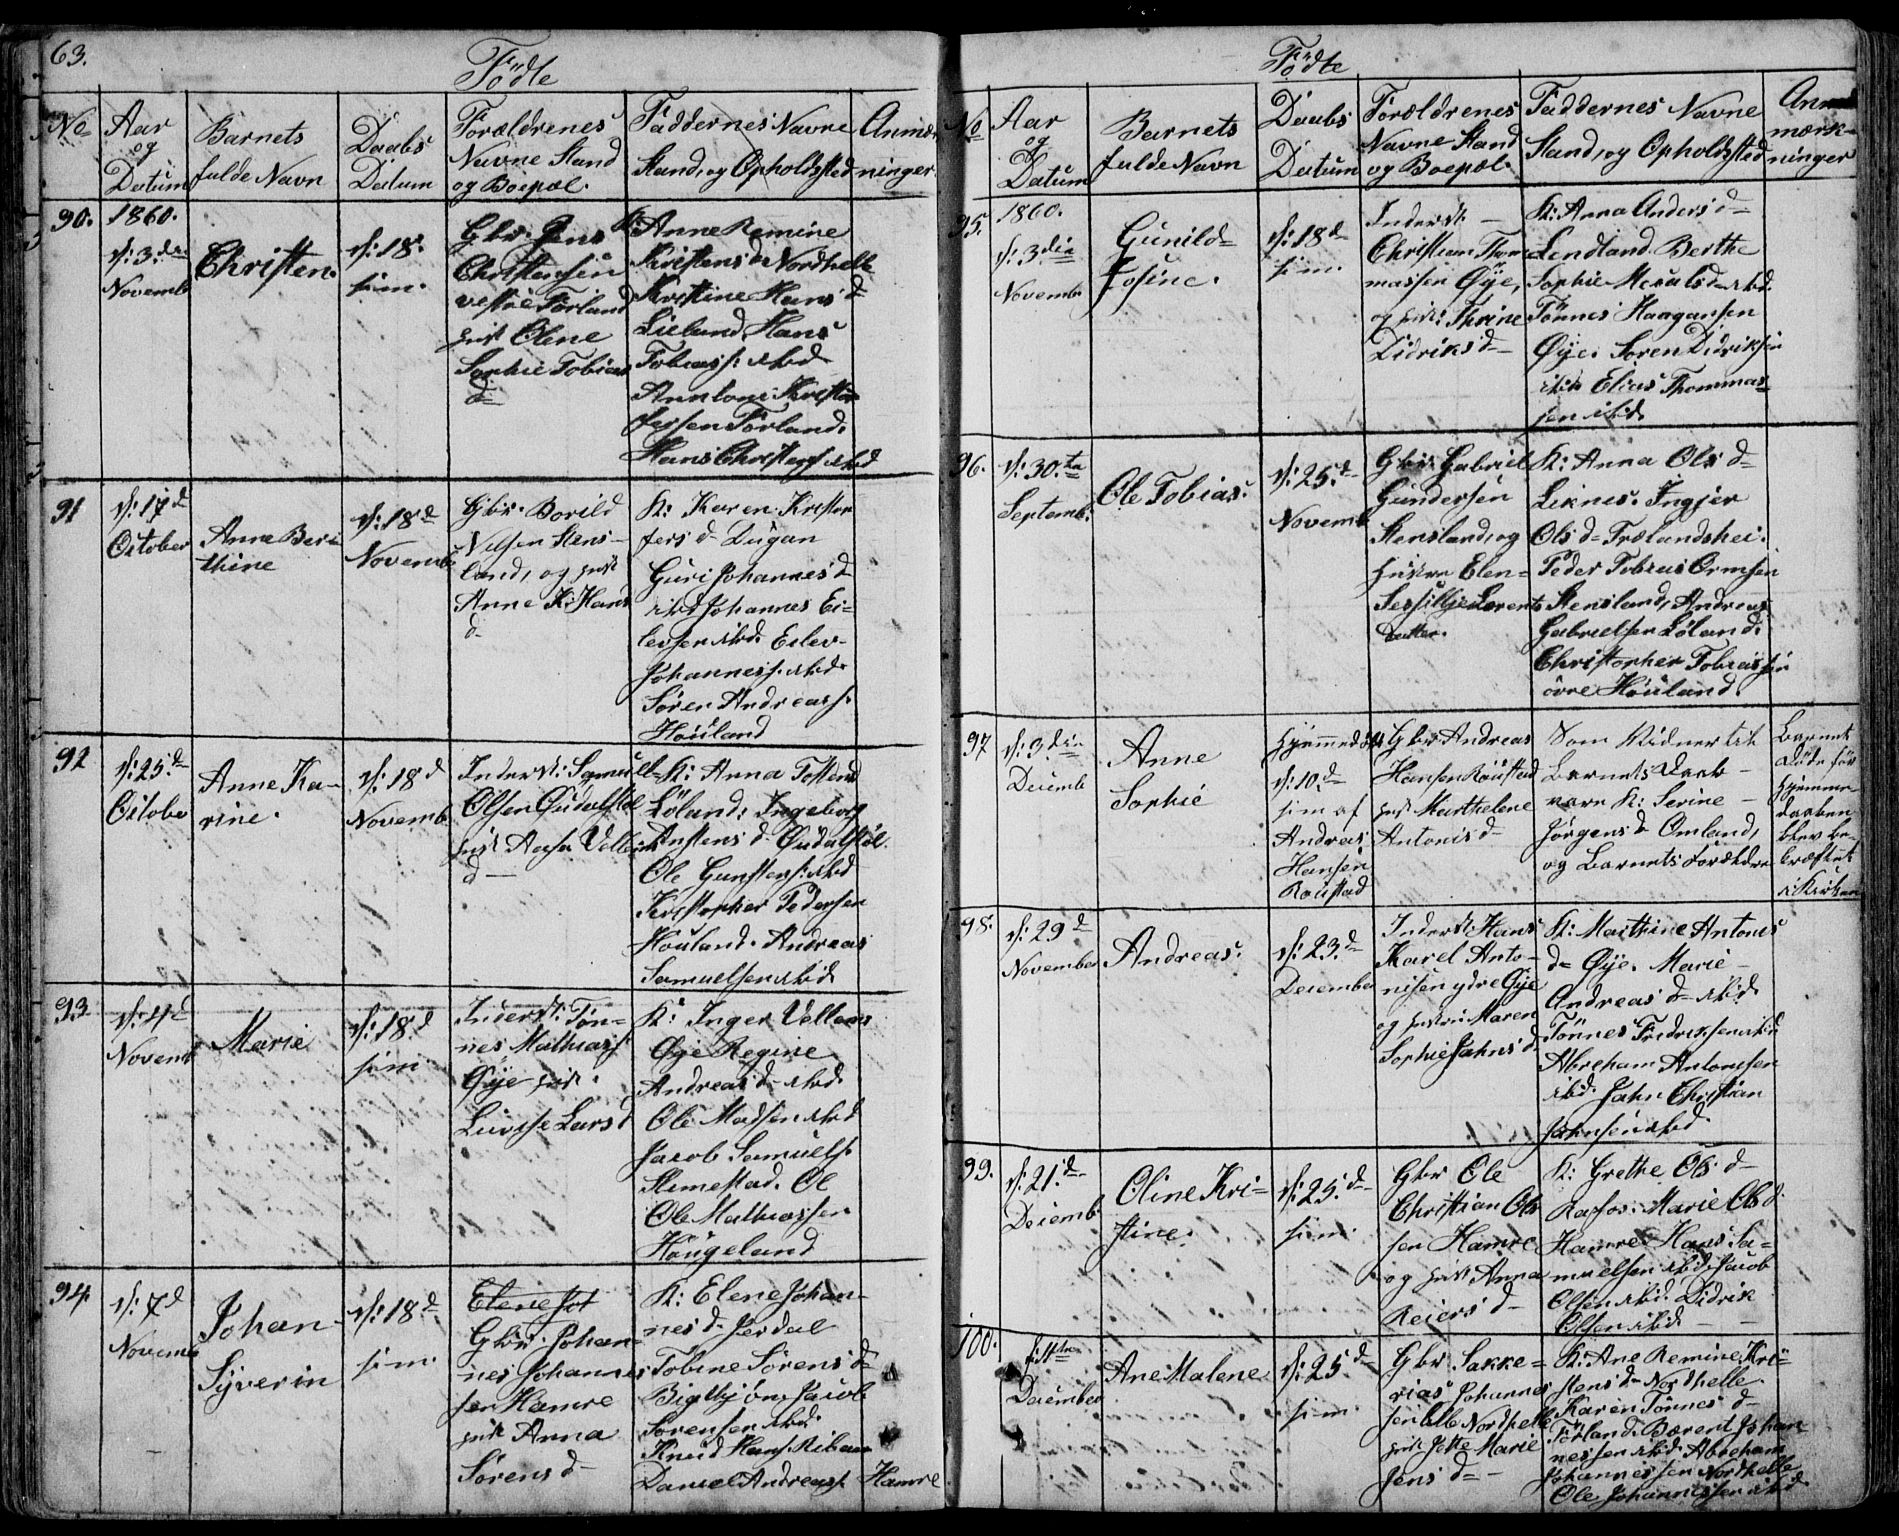 63.
Födte
No
Aar
og
Datum
Barnets
fulde Navn
Daabs
Datum
Forældrenes
Navne Stand
og Boepæl.
Faddernes Navne
Stand, og Opholdssted
Anmær
ninger.
90.
1860.
d: 3.die
Novemb
Christen.
d: 18.
s: m.
Gbr. Jens
Christensen
vestre Förland
Olene
Sophie Tobias
d
K: Anne Remine
Kristens d Nordhelle
Kristine Hans d
Lieland, Hans
Tobiass: ibid
Anntoni Kristo
fersen Förland.
Hans Christens ibid
91
d: 17d
October
Anne Ber
thine
d: 18d
Novemb
Gbr. Borild
Nilsen Stens-
land, og
Anne K: Hans
d
K: Karen Kristo
fers d Dugan
Guri Johannes d
ibid Johannes Ei-
levsen ibid. Eilev
Johanness. ibid.
Sören Andreass.
Höüland
92
d: 25.d
Octobe
Anne Ka-
rine.
d: 18d
Novemb
Inderst: Samuel
Olsen
Aase
d
K: Anna Tostens
Löland, Ingeborg
Ole ibid
Kristopher Pedersen
Höüland. Andreas
Samuelsen ibid
93
d: 4d
Novemb
Marie
d: 18.d
s: m
Inderst: Tön-
nes Mathiass
Øye
Lovise Lars d
K: Inger Vellems
Øye Regine
Andreas d ibid.
Ole Madsen ibid
Jacob Samuels.
Stemestad. Ol
Ole Mathiassen
Höügeland
94
d: 7d
Novemb
Johan
Syverin
d: 18.d
s: m.
Elene Joh
Gbr. Johan-
nes Johannes
sen Hamre
Anna
Sörens d
K: Elene Johan-
nes d. Jerdal
Tobine Sörens d
Jacob
Sörensen ibid.
Knud Hans
Daniel Andreass. Hamre
Födte
No
Aar
og
Datum
Barnets
fulde Navn
Daabs
Datum
Forældrenes
Navne Stand
og Boepæl.
Faddernes Navne
Stand, og Opholdssted
Anm
mærk-
ninger
95.
1860.
d: 3die
Novemb
Gunild
Josine.
d: 18d
s: m.
Inderst.
Christian Thom
massen Øye,
og Thrine
Didriks d
K: Anna Anders d
Lendland. Berthe
Sophie d ibid
Tönnes Haagansen
Øye. Sören Didriksen
ibid Elias Thommas-
sen ibid.
96.
d: 30.te
Septemb.
Ole Tobias.
d: 25.d
Novemb
Gbr: Gabriel
Gundersen
Stensland, og
Elen
Lorents
datter.
K: Anna Ols d
Liknes. Ingjer
Ols d Trælandshei.
Peder Tobias Ormsen
Stensland, Andreas
Gabrielsen Löland.
Christopher Tobiassen
övre Höüland.
97
d: 3die
Decemb
Anne
Sophie
Hjemmedöbt
d: 10.d
s: m af
Andreas
Hansen
Röüstad
Gbr Andreas
Hansen Röüstad
Marthelene
Antonis d
Som Vidner til
Barnets Daab
vare K: Serine
Jörgens d Omland,
og Barnets Forældre
Barnet
döde för
hjemme
daaben
blev be-
kræftet
i Kirken
98.
d: 29d
November
Andreas.
d: 23.d
December
Inderst. Hans
Karel Anto-
nisen ydre Øye
og Maren
Sophie Jahns d
K: Marthine Antonis
d Øye. Marie
Andreas d ibid.
Tönnes Fredriksen ibid
Abreham Antonisen
ibid. Jahn Christian
Jahnsen ibid.
99.
d: 21.d
Decemb
Oline Kri-
stine.
d: 25.d
s: m.
Gbr Ole
Christian Ols
sen Hamre
og Anna
Reiers d
K: Grethe Ols d
Rafos. Marie Ols d.
Hamre Hans Sa-
muelsen ibid. Jacob
Olsen ibid. Didrik
Olsen ibid
100.
d: 4de
December
Ane Malene
d: 25.d
s: m.
Gbr Sakke-
rias Johannes
sen Nordhelle
Jette Marie
Jens d
K: Ane Remine Kri-
stens d Nordhelle
Karen Tönnes d
Förland. Bærent Johan
nessen ibid. Abreham
Johannessen Nordhelle
Ole Johannessen ibid